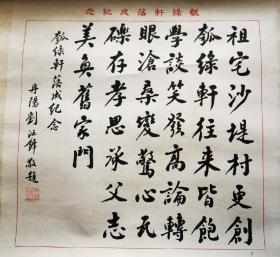 瓠綠軒落成紀念
祖宅沙堤村更創
瓠綠軒往来皆飽
學談笑發高論轉
眼滄桑變驚心瓦
礫存孝思承父志
美奐舊家門
瓠綠軒落成紀念
丹陽劉江錚敬題